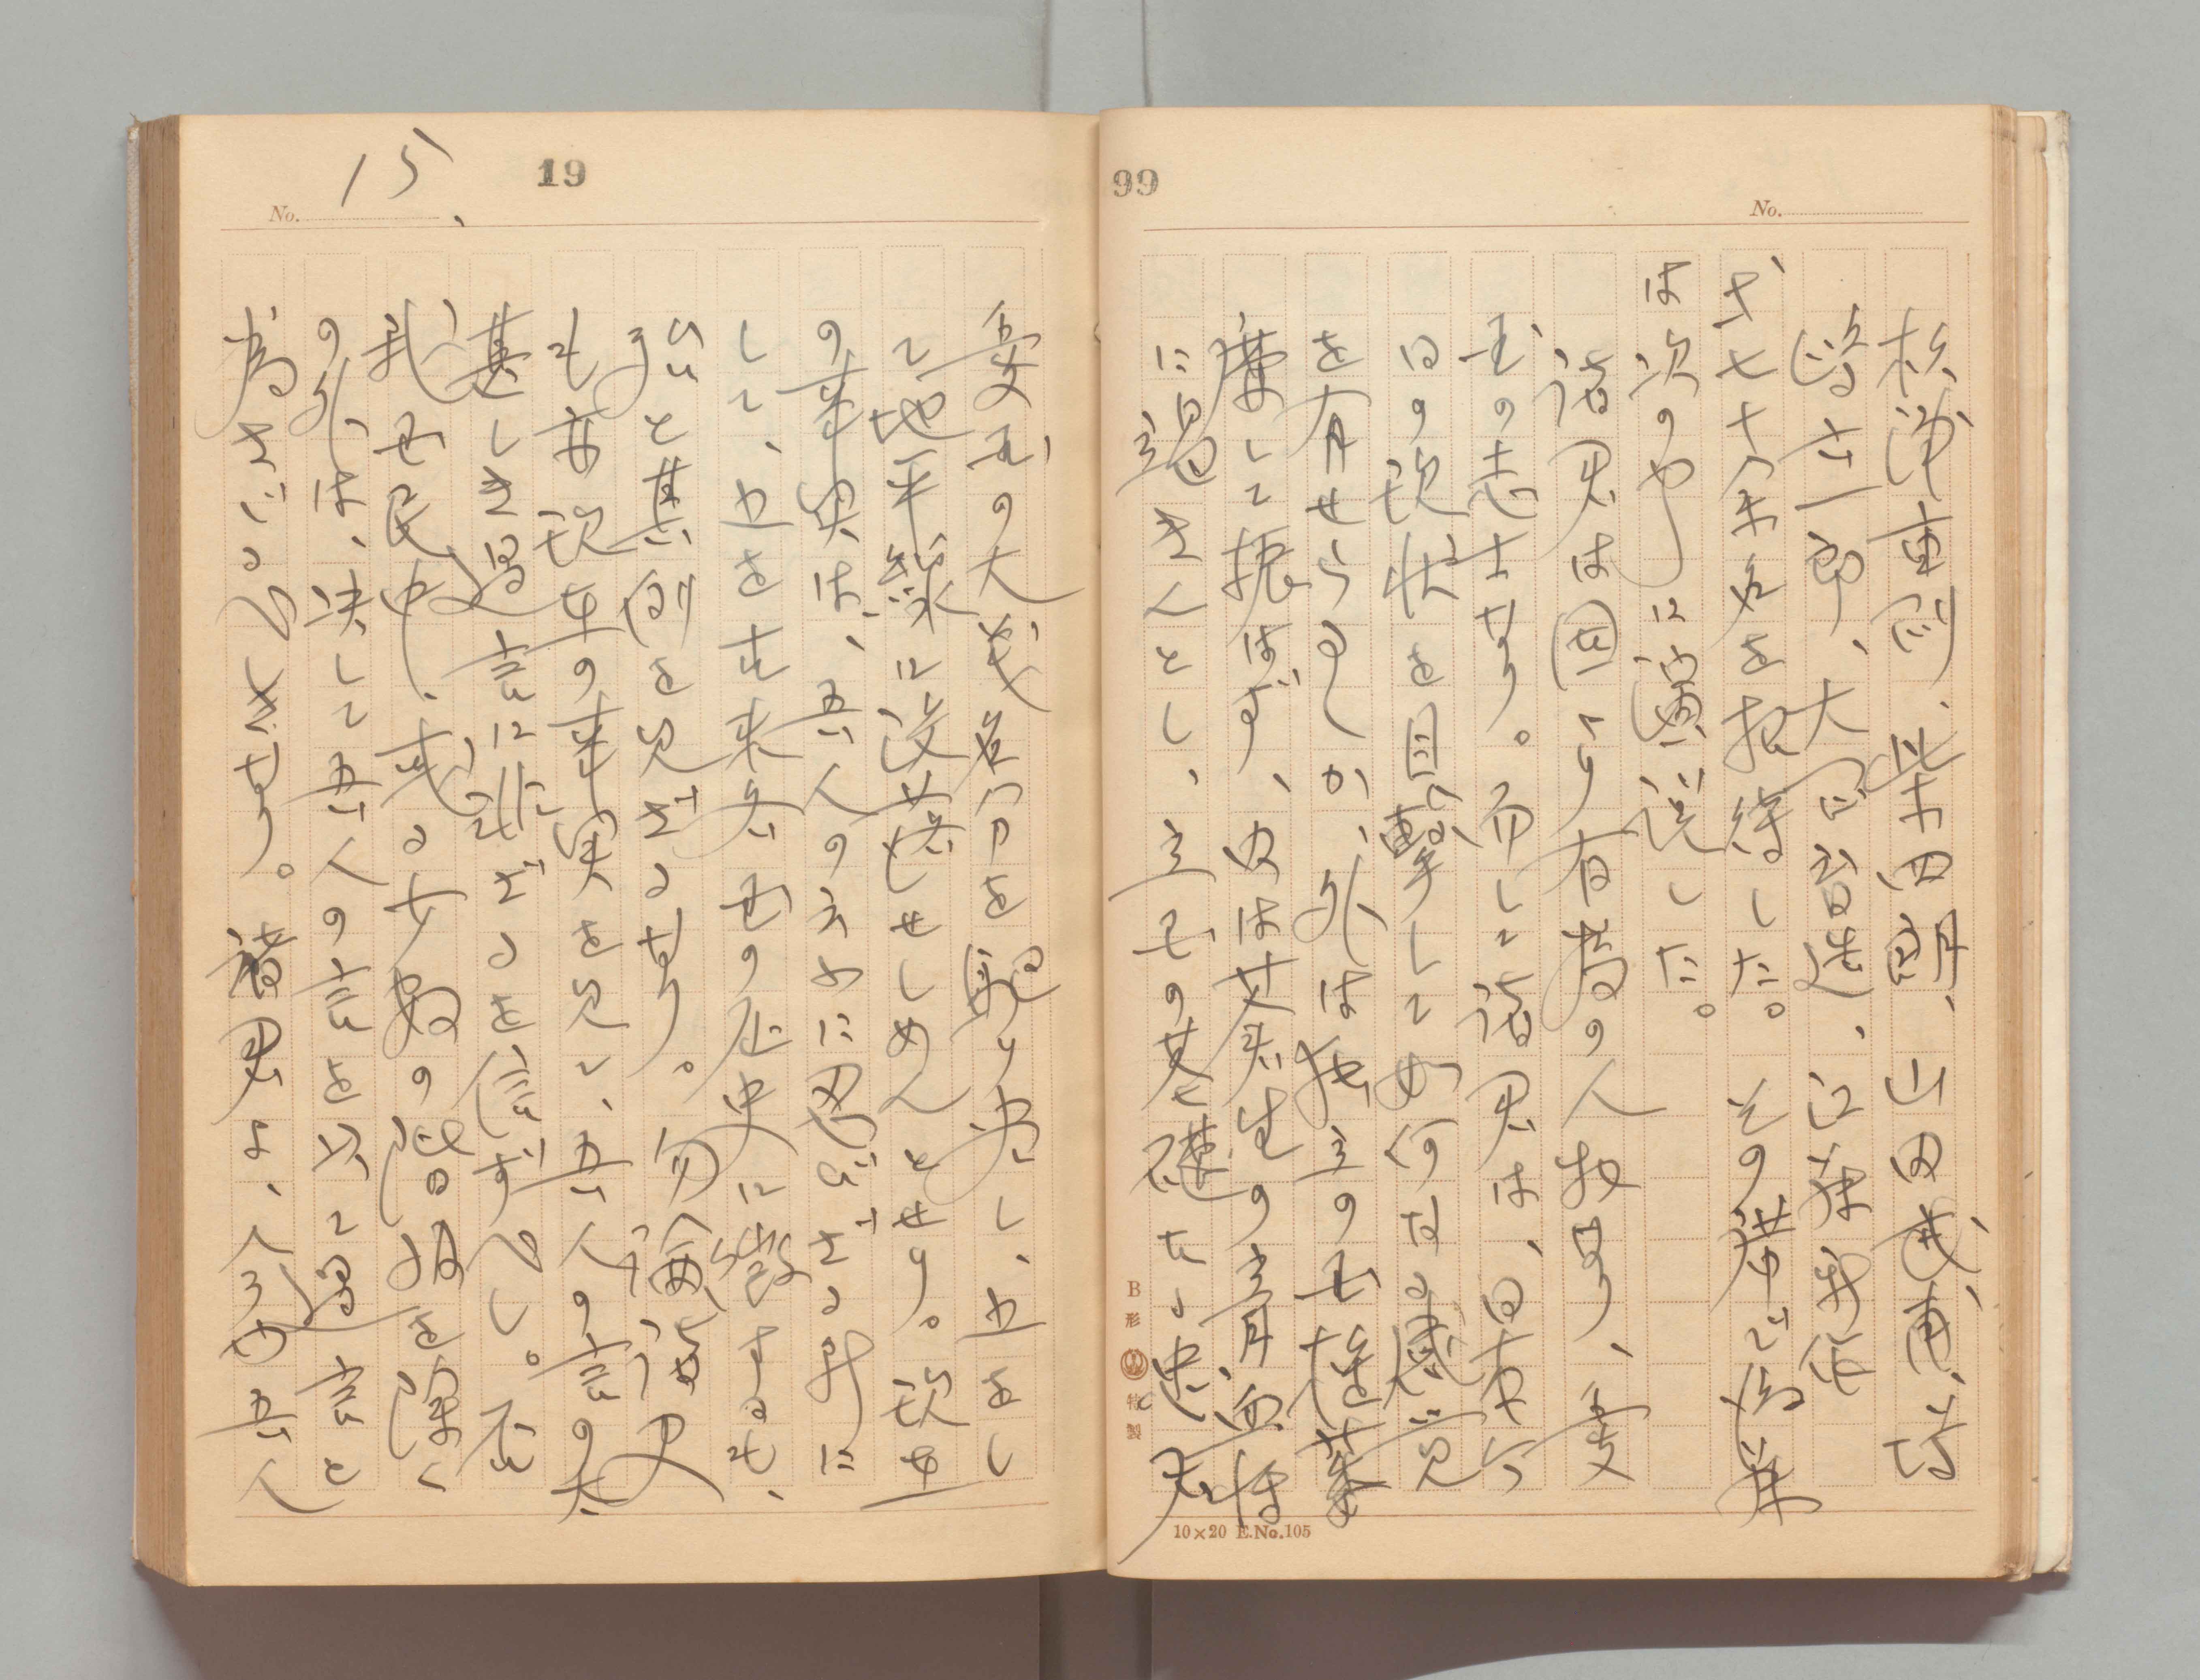 杉浦重剛、柴四朗、山田武甫、
など七十余名を招待した。その席で
は次のやうに演説した。
諸君は固より有為の人物なり、愛
国の志士なり。而して諸君は、日本今
日の現状を目撃して如何なる感覚
を有せらるゝか、外は独立の国権萎
靡して振はず、内は其蒼生の膏血将
に竭きんとし、立国の基礎たる忠君
99
No.
B形 特製
10×20 E.No.105
19
No. 15.
愛国の大義名分を し、之をし
て地平線に没落せしめんとせり。現世
の事実は、吾人の言ふに忍びざる所に
して、之を古来各世の歴史に徴するも、
殆と其例を見ざるなり。勿論諸君
も亦現在の事実を見て、吾人の言の太
甚しき過言に非ざるを信ずべし。否
我国民中、或る少数の階級を除く
の外は、決して吾人の言を以て過言と
為さゞるべきなり。諸君よ、今や吾人